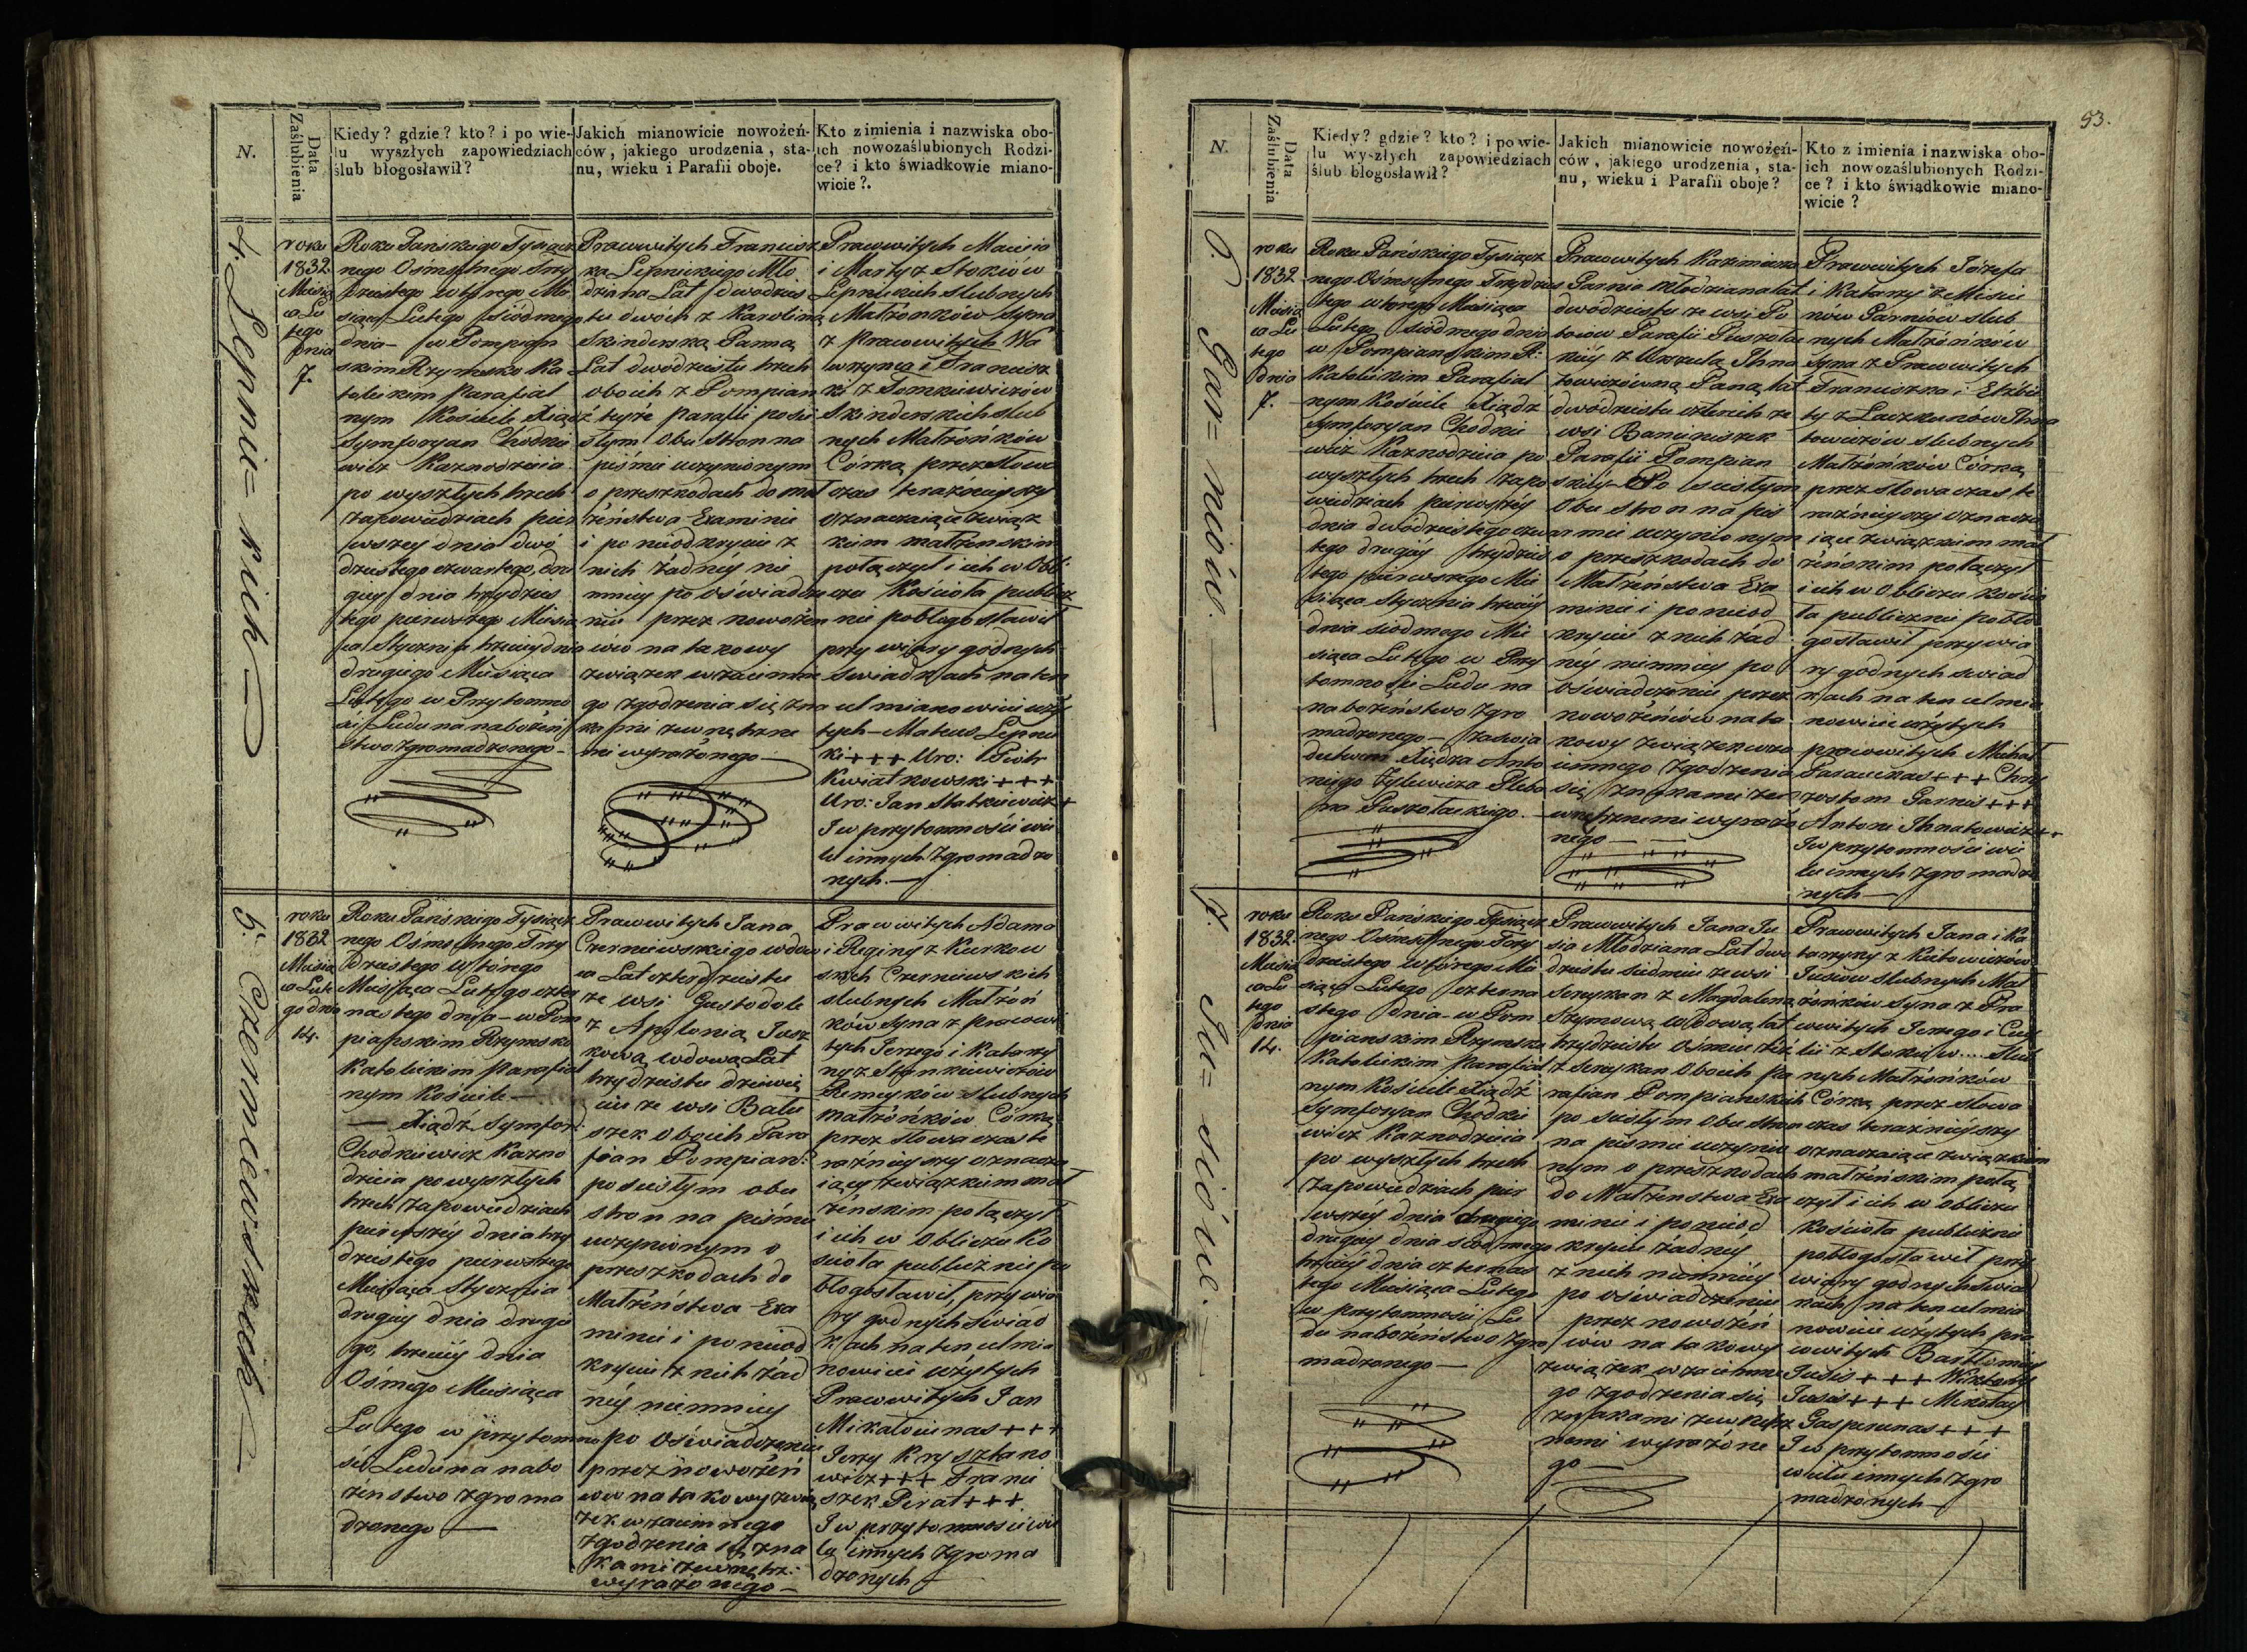 N.
Data
Zaślubienia
Kiedy? gdzie? kto? i po wie-
lu wyszłych zapowiedziach
ślub błogosławił?
Jakich mianowicie nowożeń-
ców, jakiego urodzenia, sta-
nu, wieku i Parafii oboje.
Kto z imienia i nazwiska obo-
ich nowozaślubionych Rodzi-
ce? i kto świadkowie miano-
wicie?.
4. Lepnic=kich
roku
1832
Miesią
ca Lu
tego
dnia
7.
Roku Pańskiego Tysiącz
nego Ośmsetnego Trzy
dziestego wtorego Mie
siąca Lutego siódmego
dnia - w Pompiań
skim Rzymsko Ka
tolickim Parafial
nym Kościele Xiądź
Symforyan Chodkie
wicz Kaznodzieia
po wyszłych trzech
zapowiedziach pier
wszey dnia dwó
dziestego czwartego, dru
giey dnia trzydzies
tego pierwszego Miesią
ca Stycznia trzeciey dnia
drugiego Miesiąca
Lutego w Przytomno
ści Ludu na nabożeń
stwo zgromadzonego -
Prawowitych Francisz
ka Lepnickiego Mło
dziana Lat dwadzies
tu dwóch z Karoliną
Skinderską Panną
Lat dwudziestu trzech
oboich z Pompian
teyże parafii po ści
słym Obu stron na
piśmie uczynionym
o przeszkodach do mał
żeństwa Examinie
i po nieodkryciu z
nich żadnéy nie
mniey po oświadcze
niu przez nowożeń
ców na takowy
związek wzaiemne
go zgodzenia się zna
kami zewnętrzne
mi wyrażonego -
Prawowitych Macieia
i Marty z Stokiów
Lepnickich slubnych
Małżonków Syna
z Prawowitych Wa
wrzynca i Francisz
ki z Tomkiewiczów
Skinderskich slub
nych Małżonków
Córką przez słowa
czas teraźnieyszy
oznaczaiące związ
kiem małżenskim
połączył i ich w Obli
czu Kościoła publicz
nie pobłogosławił
przy wiary godnych
swiadkach na ten
cel mianowicie uży
tych - Mateus Lepnic
ki +++ Uro: Piotr
Kwiatkowski +++
Uro: Jan Statkiewicz +
I w przytomności wie
lu innych zgromadzo
nych. -
5. Czerniewskich -
roku
1832
Miesią
ca Lute
go dnia
14.
Roku Pańskiego Tysiącz
nego Ośmsetnego Trzy
dziestego Wtórego
Miesiąca Lutego czter
nastego dnia - w Pom
piańskim Rzymsko
Katolickim Parafial
nym Kościele -
- Xiądź Symfori
Chodkiewicz Kazno
dzieia po wyszłych
trzech zapowiedziach
pierwszéy dnia trzy
dziestego pierwszego
Miesiąca Stycznia
drugiey dnia drugie
go, trzeciéy dnia
Ośmego Miesiąca
Lutego w przytomno
ści Ludu na nabo
żenstwo zgroma
dzonego -
Prawowitych Jana
Czerniewskiego wdow
ca Lat czterdziestu
ze wsi Gustodole
z Apolonią Jusz
kową wdową Lat
trzydziestu dziewię
ciu ze wsi Balu
szek Oboich Para
fian Pompian:
po scisłym obu
stron na piśmie
uczynionym o
przeszkodach do
Małżeństwa Exa
minie i po nieod
kryciu z nich żad
néy niemniey
po Oświadczeniu
przez nowożeń
ców na takowy zwią
zek wzaiemnego
zgodzenia się zna
kami zewnętrz:
wyrażonego -
Prawowitych Adama
i Reginy z Kurkow
skich Czerniewskich
slubnych Małżon
ków Syna z prawowi
tych Jerzego i Katarzy
ny z Stankiewiczów
Remeyków slubnych
małżónków Córką
przez słowa czas te
raźnieyszy oznacza
iący związkiem mał
żenskim połączył
i ich w Obliczu Ko
scioła publicznie po
błogosławił, przy wia
ry godnych świad
kach na ten cel mia
nowicie użytych
Prawowitych Jan
Mikałoiunas +++
Jerzy Krysztano
wicz +++ Franci
szek Pirat +++
I w przytomnosci wie
lą innych zgroma
dzonych -
93.
N.
Data
Zaślubienia
Kiedy? gdzie? kto? i po wie-
lu wyszłych zapowiedziach
ślub błogosławił?
Jakich mianowicie nowożeń-
ców, jakiego urodzenia, sta-
nu, wieku i Parafii oboje?
Kto z imienia i nazwiska obo-
ich nowozaślubionych Rodzi-
ce? i kto świadkowie miano-
wicie?
6. Gar=niów. -
roku
1832
Miesią
ca Lu
tego
dnia
7.
Roku Pańskiego Tysiącz
nego Ośmsetnego Trzydzies
tego wtorego Miesiąca
Lutego siodmego dnia
w Pompianskim R:
Katolickim Parafial
nym Kościele Xiądź
Symforyan Chodkie
wicz Kaznodzieia po
wyszłych trzech zapo
wiedziach pierwszéy
dnia dwódziestego czwar
tego drugiéy trzydzies
tego pierwszego Mie
siąca Stycznia trzeciéy
dnia siodmego Mie
siąca Lutego w Przy
tomności Ludu na
nabożeństwo zgro
madzonego - za swia
dectwem Xiędza Anto
niego Zylewicza Pleba
na Puszołackiego. -
Prawowitych Kazimierza
Garnia Młodziana lat
dwódziestu ze wsi Po
towow Parafii Puszoła
ckiéy z Urszulą Ihna
towiczówną Paną, lat
dwódziestu czterech ze
wsi Baniuniszek
Parafii Pompian
skiéy - Po scisłym
Obu stron na piś
mie uczynionym
o przeszkodach do
Małżeństwa Exa
minie i po nieod
kryciu z nich żad
néy niemniey po
Oświadczeniu przez
nowożeńców na ta
kowy związek wza
iemnego zgodzenia
się znakami ze
wnętrznemi wyrażo
nego -
Prawowitych Józefa
i Katarzy z Misiu
nów Garniów slub
nych Małżónków
Syna z Prawowitych
Franciszka i Elżbie
ty z Laczkunów Ihna
towiczów slubnych
Małżónków Córką
przez słowa czas te
raźnieyszy oznacza
iące związkiem mał
żéńskim połączył
i ich w Obliczu Koscio
ła publicznie pobło
gosławił przy wia
ry godnych swiad
kach na ten cel mia
nowicie użytych
prawowitych Michał
Pasauckas +++ Chry
zostom Garnis +++
Antoni Ihnatowicz ++
I w przytomności wie
lu innych zgromadzo
nych -
7. Ju=siów. -
roku
1832
Miesią
ca Lu
tego
dnia
14.
Roku Pańskiego Tysiącz
nego Ośmsetnego Trzy
dziestego wtórego Mie
siąca Lutego czterna
stego dnia - w Pom
pianskim Rzymsko
Katolickim Parafial
nym Kościele Xiądź
Symforyan Chodkie
wicz Kaznodzieia
po wyszłych trzech
zapowiedziach pier
wszéy dnia drugiego
drugiey dnia siodmego
trzeciéy dnia czternas
tego Miesiąca Lutego
w przytomnosci Lu
du nabożeństwo zgro
madzonego -
Prawowitych Jana Ju
sia Młodziana Lat dwu
dziestu siedmiu ze wsi
Sereykan z Magdaleną
Szymową Wdową lat
trzydziestu Ośmiu téż
z Sereykan Oboich Pa
rafian Pompianskich
po scisłym Obu stron
na pismie uczynio
nym o przeszkodach
do Małżenstwa Exa
minie i po nieod
kryciu żadnéy
z nich niemniéy
po oświadczeniu
przez nowożeń
ców na takowy
związek wzaiemne
go zgodzenia się
znakami zewnętrz
nemi wyrażone
go -
Prawowitych Jana i Ka
tarzyny z Kutowiczów
Jusiów slubnych Mał
żónków Syna z Pra
wowitych Jerzego i Cecy
lii z Stokiów .... slub
nych Małżónków
Córką przez słowa
czas terazniéyszy
oznaczaiące związkiem
małżeńskim połą
czył i ich w obliczu
Kościoła publicznie
pobłogosławił przy
wiary godnych swiad
kach na ten cel mia
nowicie użytych pra
wowitych Bartłomiey
Jusis +++ Wiktory
Jusis +++ Mikołay
Gasperunas +++
I w przytomności
wielu innych zgro
madzonych -